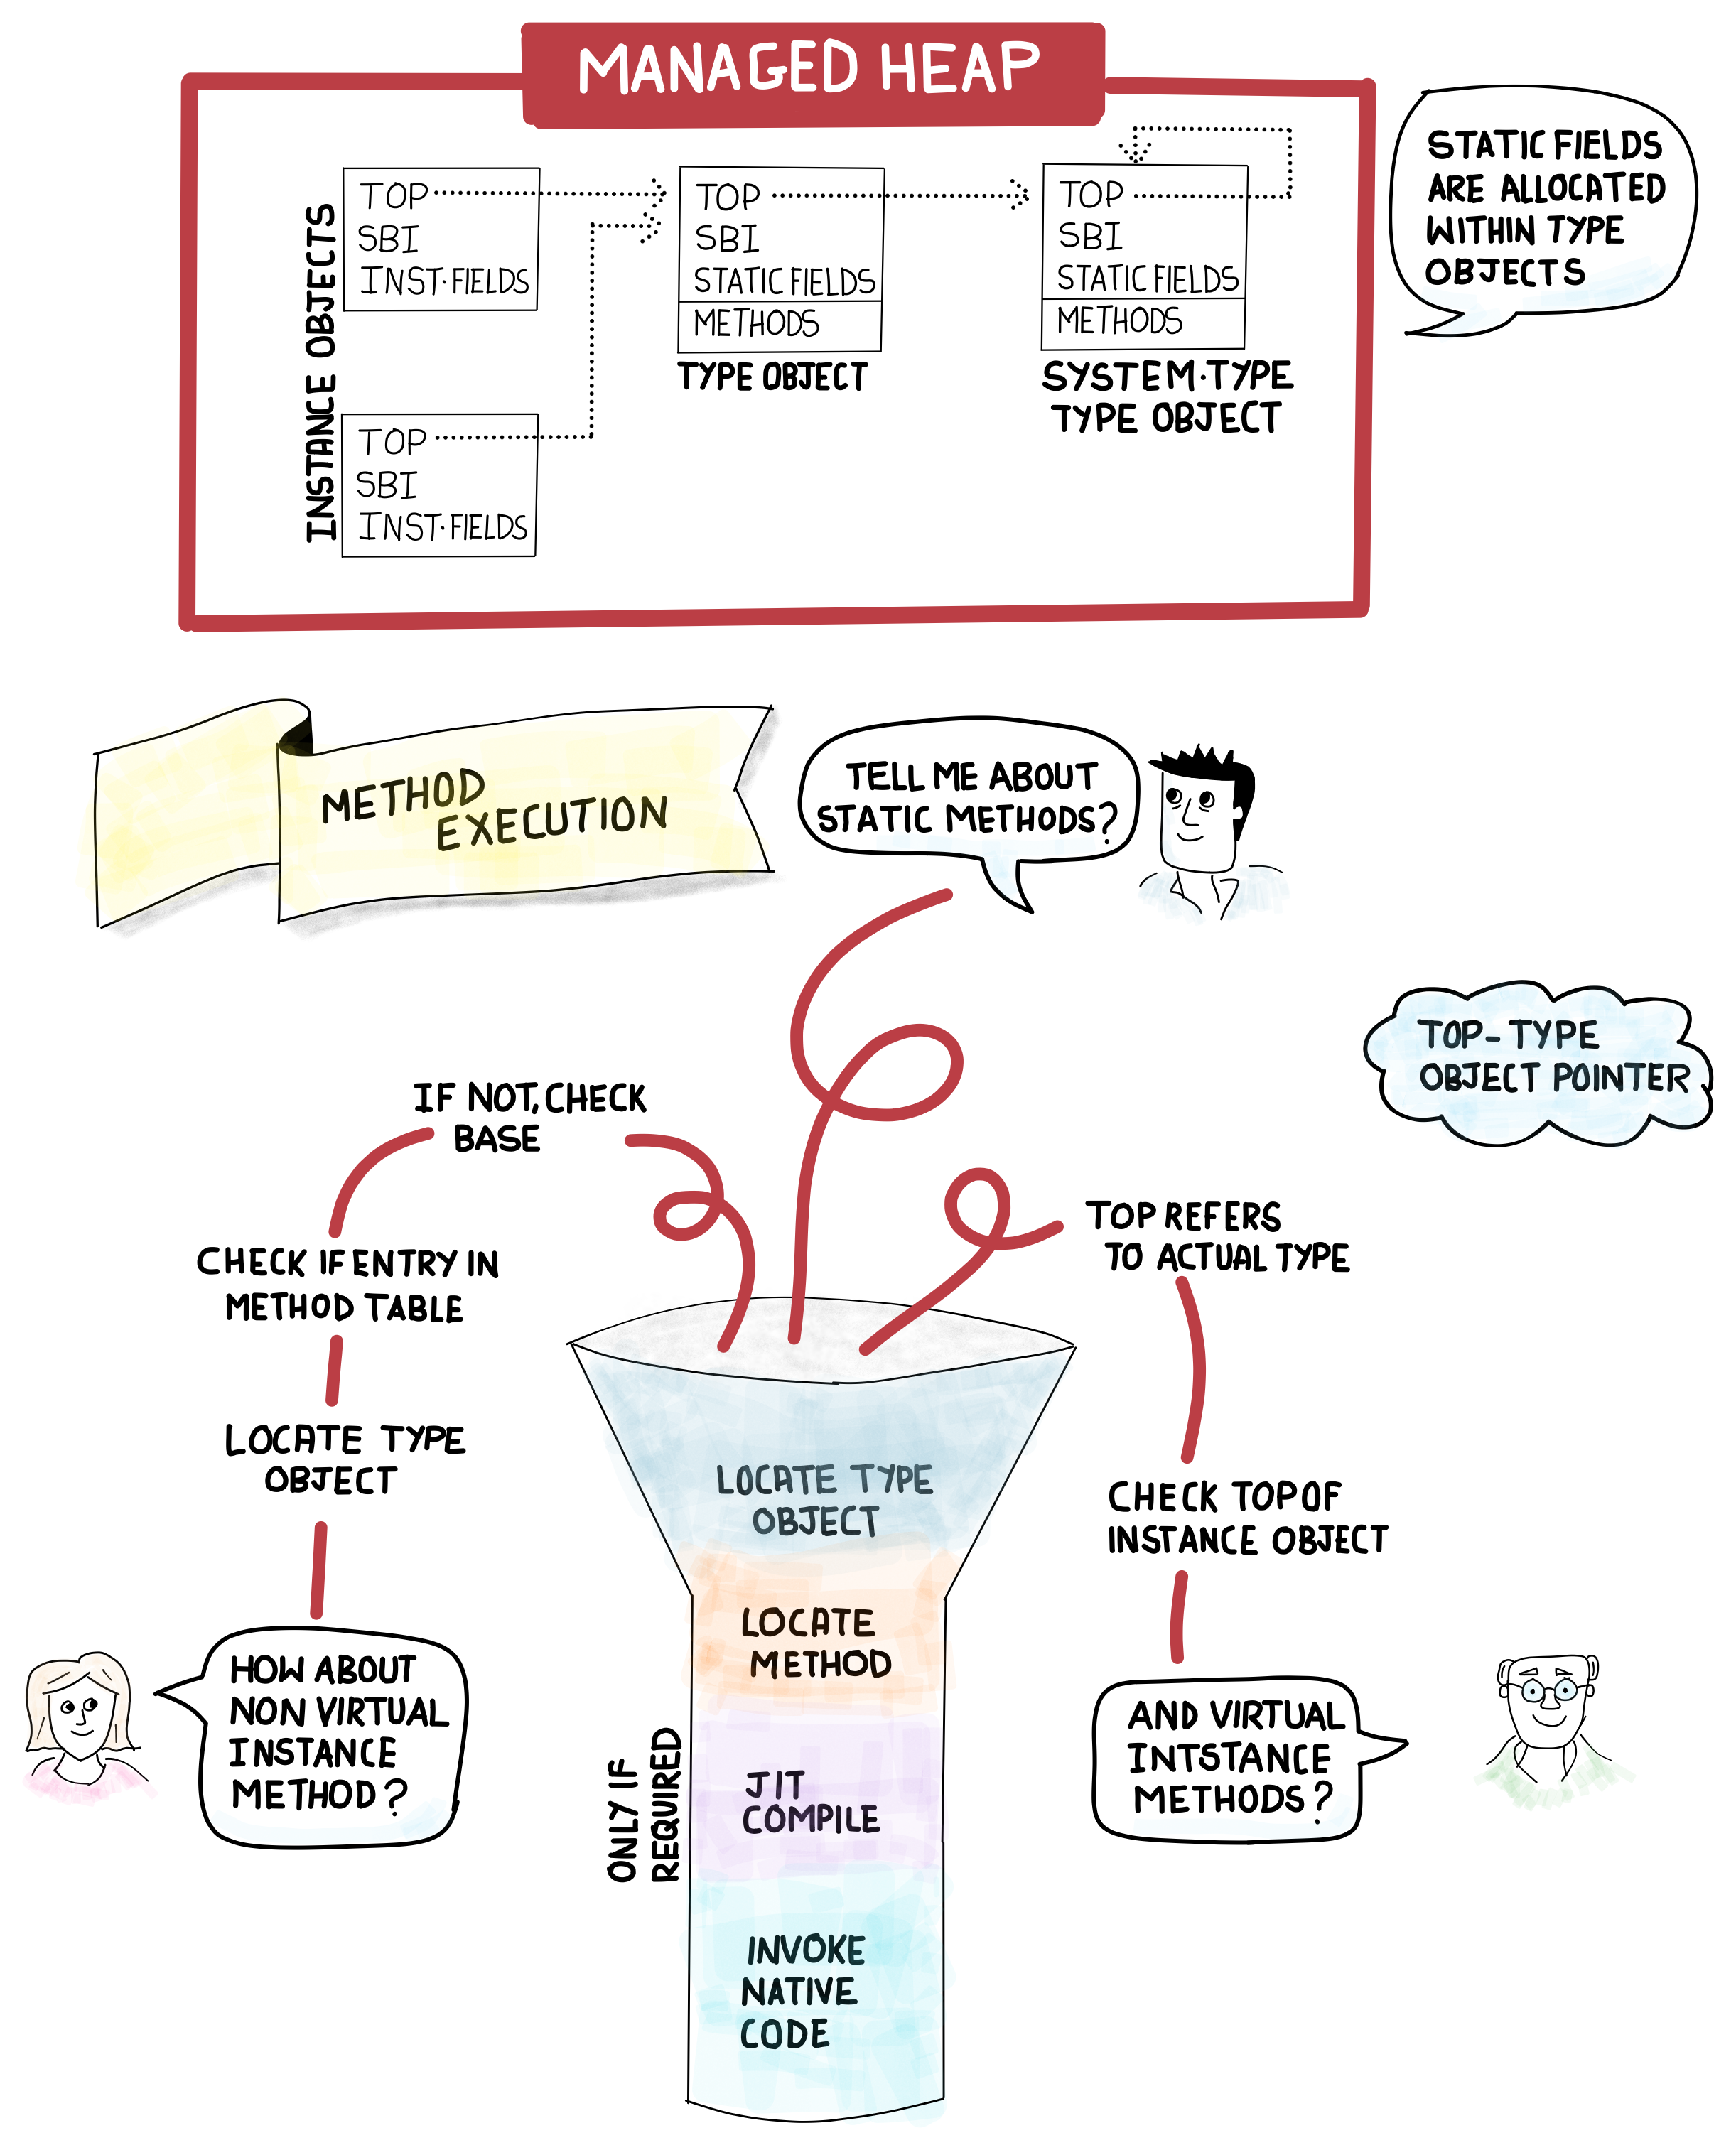 MANAGED HEAP
INSTANCE OBJECTS
TOP
SBI
INST.FIELDS
TOP
SBI
INST.FIELDS
TOP
SBI
STATIC FIELDS
METHODS
TYPE OBJECT
TOP
SBI
STATIC FIELDS
METHODS
SYSTEM.TYPE
TYPE OBJECT
STATIC FIELDS
ARE ALLOCATED
WITHIN TYPE
OBJECTS
METHOD
EXECUTION
TELL ME ABOUT
STATIC METHODS?
TOP-TYPE
OBJECT POINTER
IF NOT, CHECK
BASE
CHECK IF ENTRY IN
METHOD TABLE
LOCATE TYPE
OBJECT
HOW ABOUT
NON VIRTUAL
INSTANCE
METHOD?
TOP REFERS
TO ACTUAL TYPE
CHECK TOP OF
INSTANCE OBJECT
AND VIRTUAL
INTSTANCE
METHODS?
LOCATE TYPE
OBJECT
LOCATE
METHOD
ONLY IF
REQUIRED
JIT
COMPILE
INVOKE
NATIVE
CODE